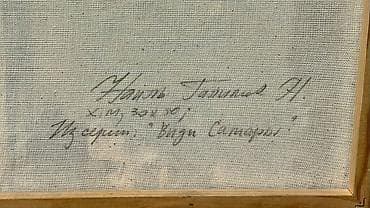 Наиль Галимов Н.
х.м, 30х40;
Из серии: "Види Самары."